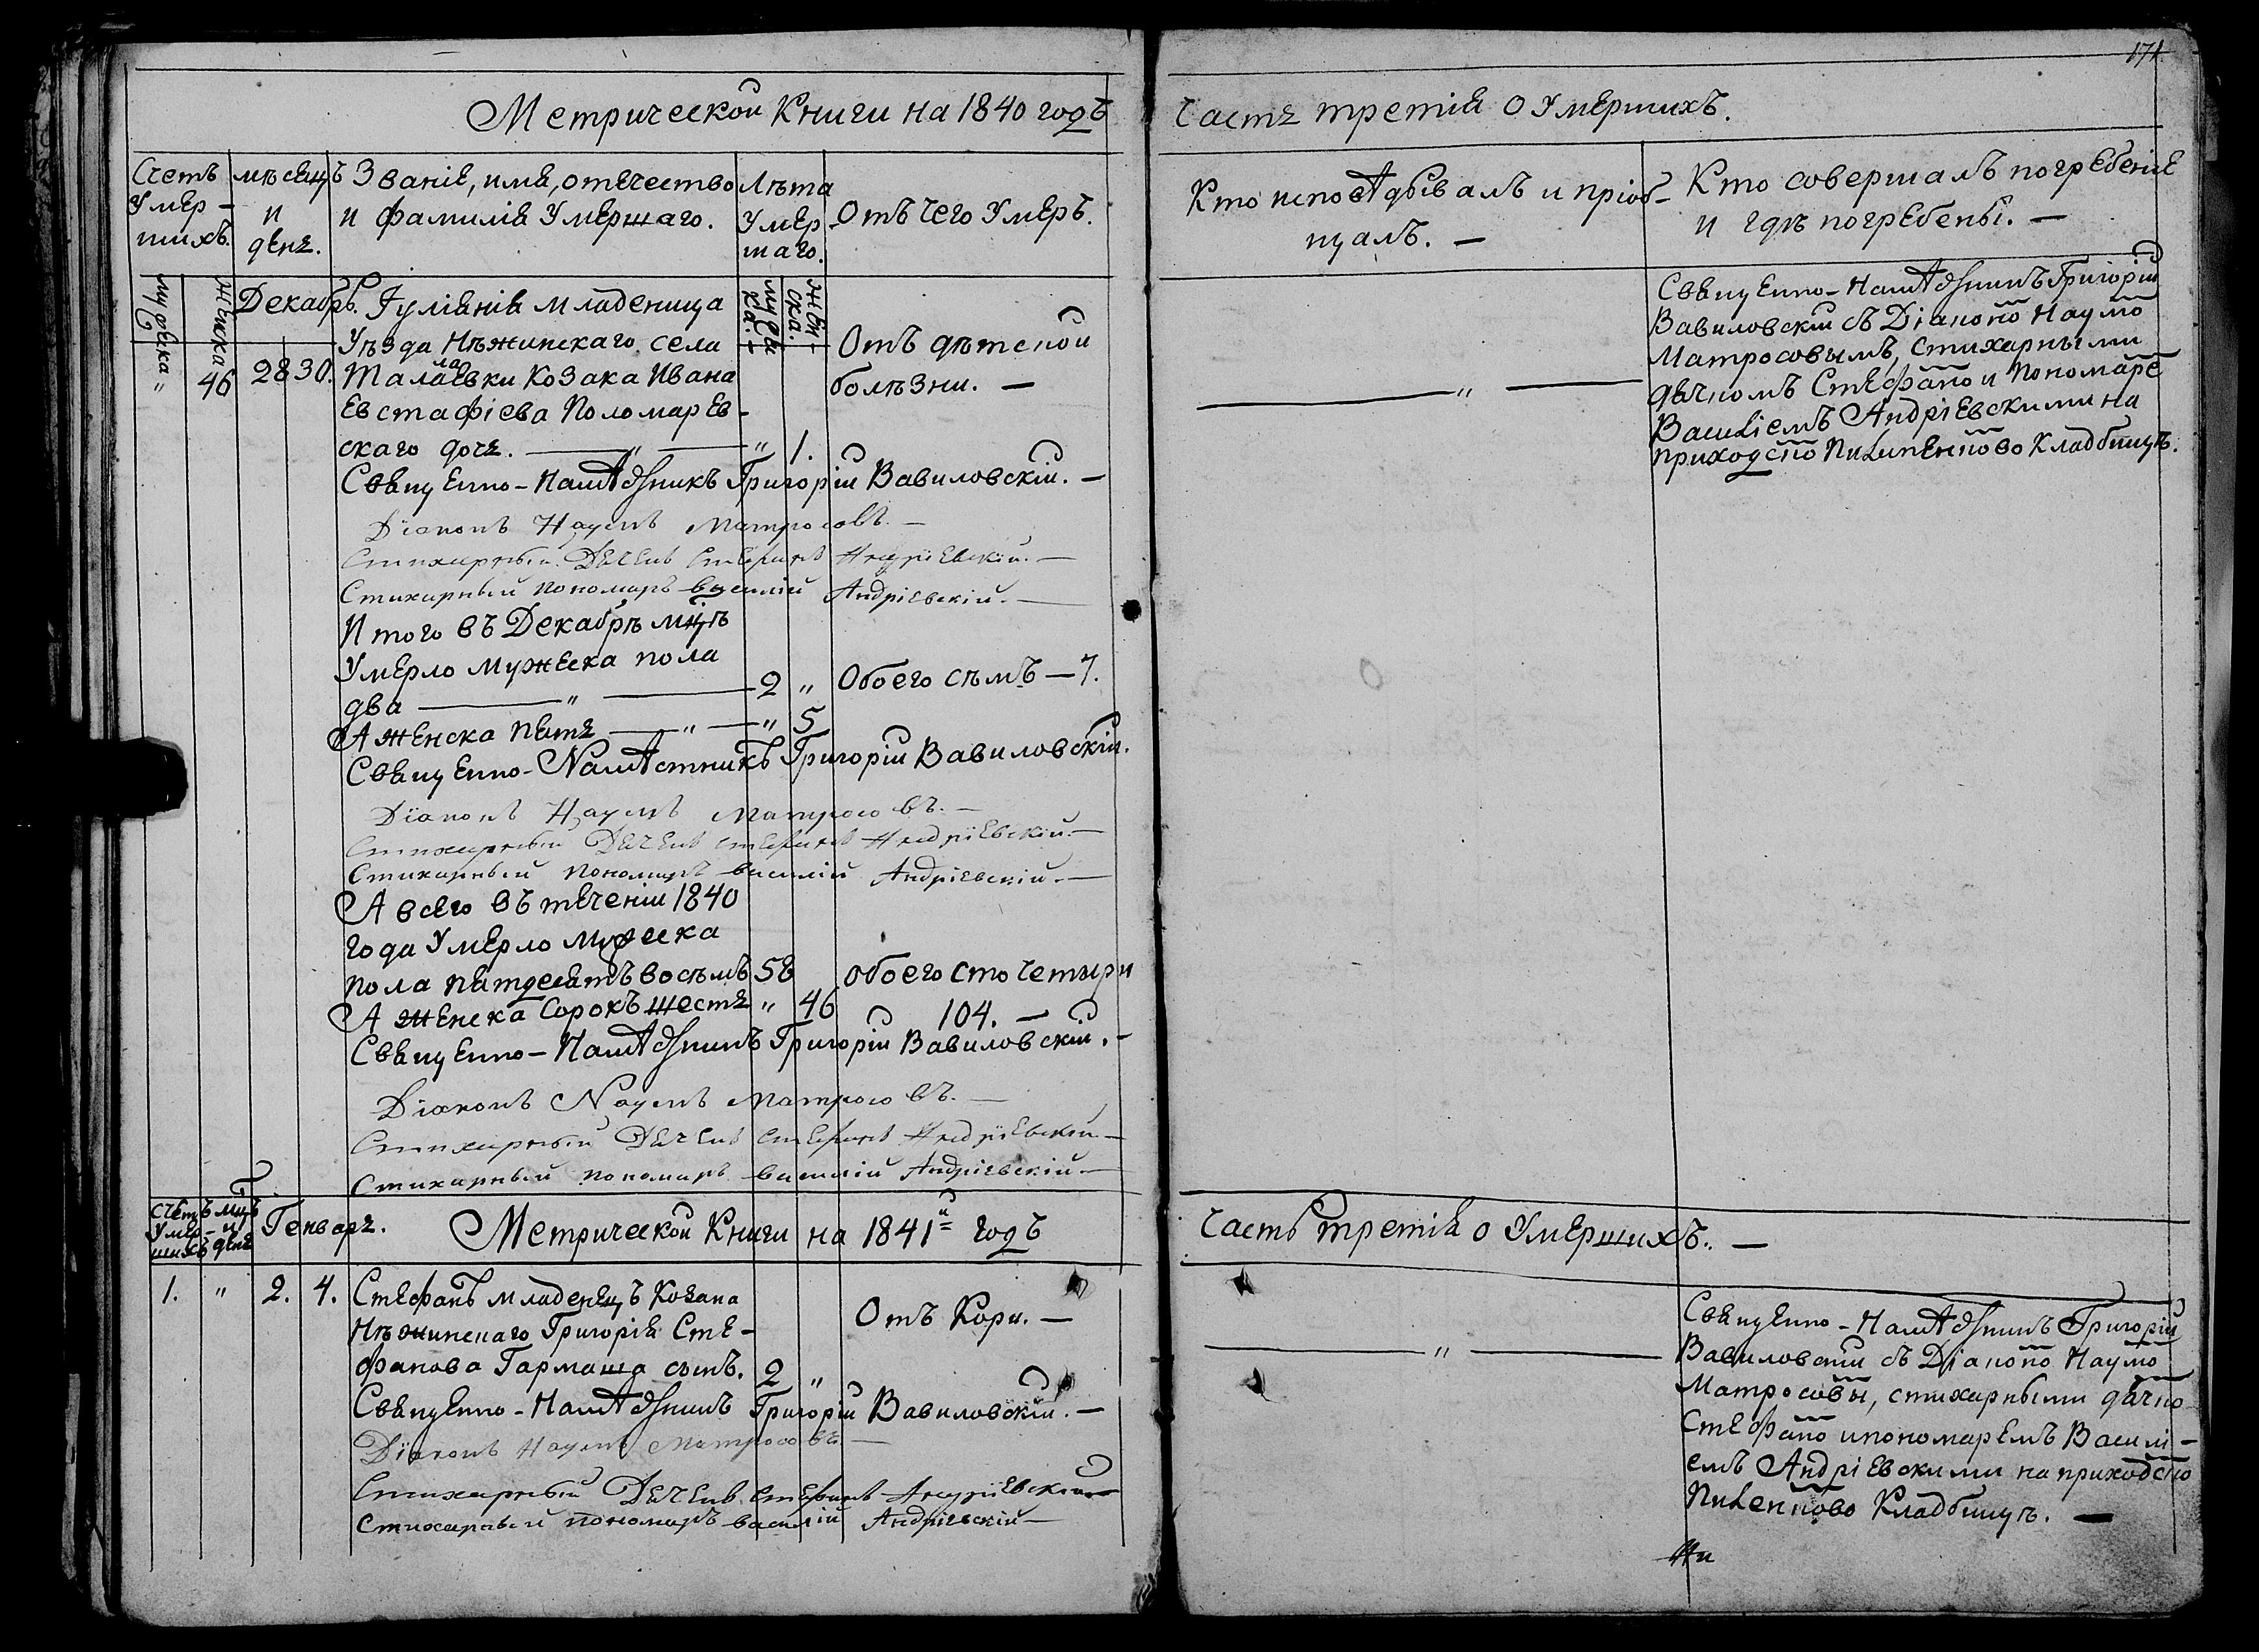 171
Метрической Книги на 1840 годъ
Часть третія о Умершихъ.
Счетъ Умер-шихъ.
мѣсяцъ и день.
Званіе, имя, отечество
и фамилія Умершаго.
Лѣта Умер-шаго.
Отъ чего Умеръ.
Кто исповѣдывалъ и пріоб-
щалъ. —
Кто совершалъ погребеніе
и гдѣ погребены. —
мужеска
Женска
Декабрь.
мужеска.
женска.
" 46 28 30.
Іуліянія младеница
Уѣзда Нѣжинскаго села
Талалаевки Козака Ивана
Евстафіева Поломарев-
скаго дочь. — " — " 1.
Отъ дѣтской
болѣзни. —
— " —
Священно-Намѣстникъ Григорій
Вавиловскій съ Діаконо Наумо
Матросовымъ, стихарными
дячкомъ Стефано и Пономаре
Василіемъ Андріевскими на
приходско Кладбищѣ.
Священно-Намѣстникъ Григорій Вавиловскій. —
Діаконъ Наумъ Матросовъ. —
Стихарный Дячекъ Стефанъ Андріевскій. —
Стихарный пономарь Василій Андріевскій. —
Итого въ Декабрѣ мцѣ
Умерло мужеска пола
два — " — 2 " Обоего сѣмъ — 7.
А женска пять — " — " 5
Священно-Намѣстникъ Григорій Вавиловскій.
Діаконъ Наумъ Матросовъ. —
Стихарный Дячекъ Стефанъ Андріевскій. —
Стихарный пономарь Василій Андріевскій. —
А всего въ теченіи 1840
года Умерло мужеска
пола пятдесятъ восѣмъ 58 обоего сто четыри
А женска сорокъ шесть " 46 104. —
Священно-Намѣстникъ Григорій Вавиловскій. —
Діаконъ Наумъ Матросовъ. —
Стихарный Дячекъ Стефанъ Андріевскій —
Стихарный пономарь Василій Андріевскій —
Счетъ Умер-шихъ
мцъ и день
Генварь.
Метрической Книги на 1841й годъ
Часть третія о Умершихъ. —
1. " 2. 4.
Стефанъ младенецъ Козака
Нѣжинскаго Григорія Сте-
фанова Гармаша сынъ. 2 "
Отъ Кори. —
— " —
Священно-Намѣстникъ Григорій
Вавиловскій съ Діаконо Наумо
Матросовы, стихарными дячко
Стефано и пономаремъ Васілі-
емъ Андріевскими на приходско
Кладбищѣ. —
Священно-Намѣстникъ Григорій Вавиловскій. —
Діаконъ Наумъ Матросовъ. —
Стихарный Дячекъ Стефанъ Андріевскій —
Стихарный пономарь Василій Андріевскій —